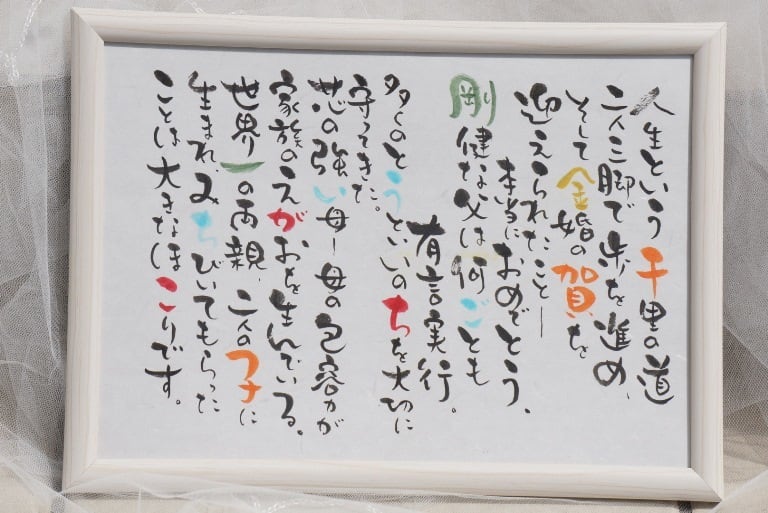 人生という千里の道
二人三脚で歩を進め、
そして金婚の賀を
迎えられたこと―
本当におめでとう、
剛健な父は何ごとも
有言実行。
多くのとうといいのちを大切に
守ってきた。
芯の強い母―母の包容力が
家族のえがおを生んでいる。
世界一の両親、二人の子に
生まれ、みちびいてもらった
ことは大きなほこりです。